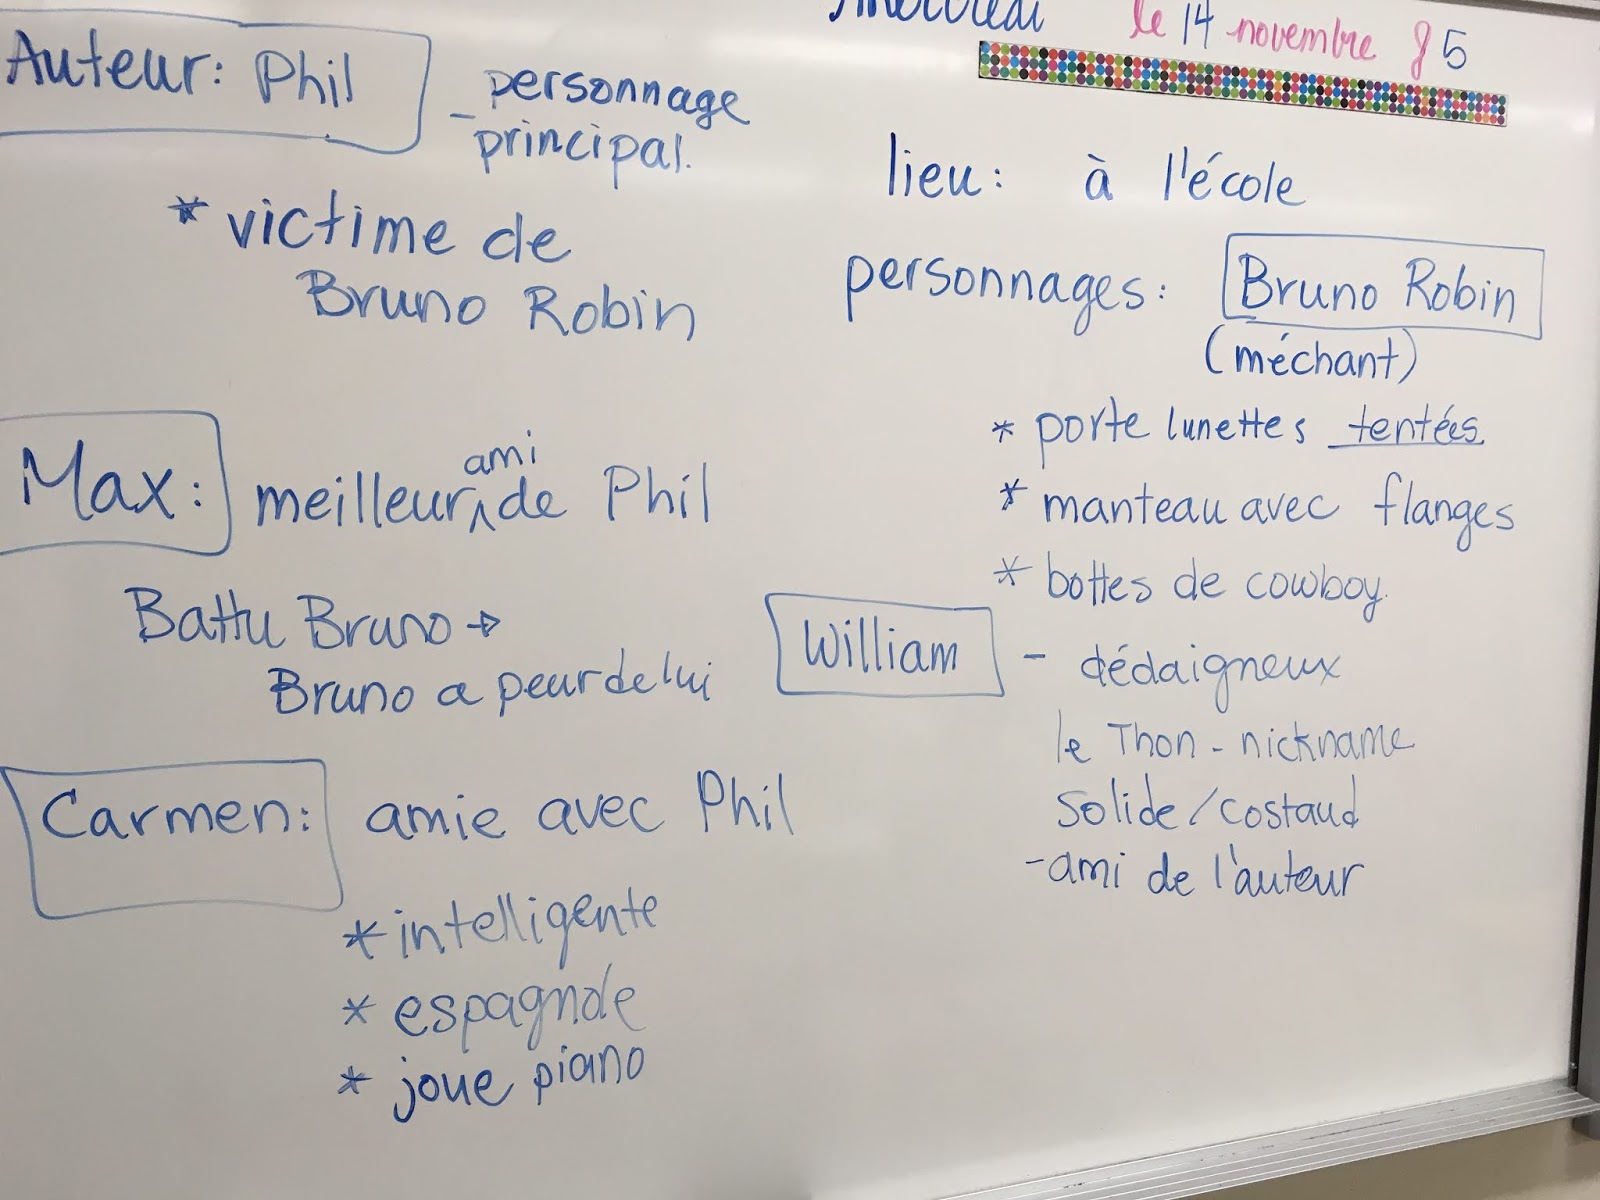 mercredi le 14 novembre J5
Auteur: Phil
- personnage
principal.
* victime de
Bruno Robin
Max: meilleur ami de Phil
Battu Bruno →
Bruno a peur de lui
Carmen: amie avec Phil
* intelligente
* espagnole
* joue piano
lieu: à l'école
personnages: Bruno Robin
(méchant)
* porte lunettes tentées
* manteau avec flanges
* bottes de cowboy.
William - dédaigneux
le Thon - nickname
Solide/costaud
- ami de l'auteur